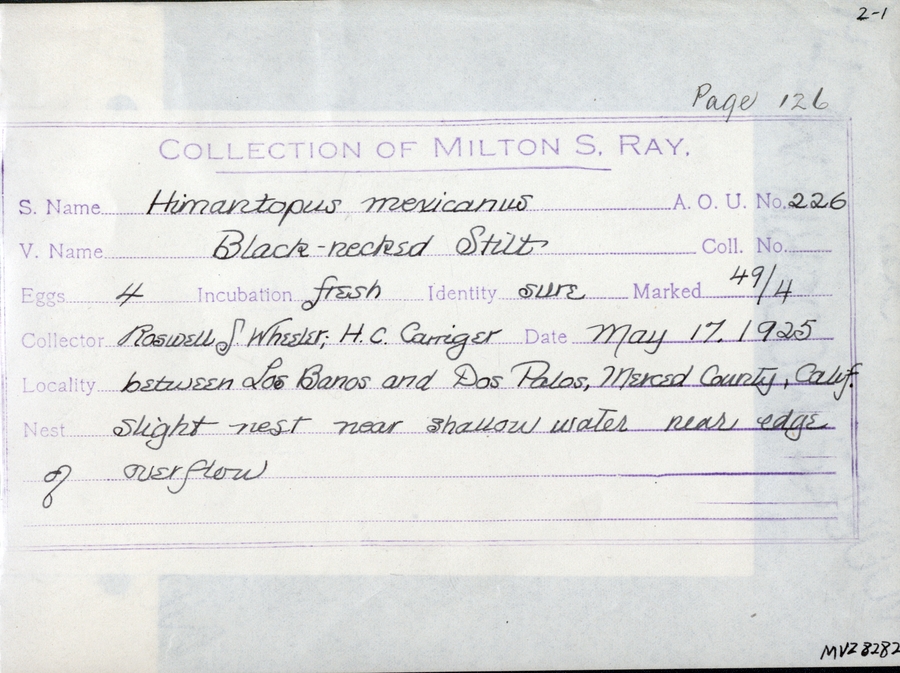 2-1
Page 126
COLLECTION OF MILTON S. RAY.
S. Name Himantopus mexicanus A. O. U. No. 226
V. Name Black-necked Stilt Coll. No.
Eggs 4 Incubation fresh Identity sure Marked 49/4
Collector Roswell S Wheeler; H.C. Carriger Date May 17, 1925
Locality between Los Banos and Dos Palos, Merced County, Calif.
Nest slight nest near shallow water near edge
of overflow
MVZ 8282